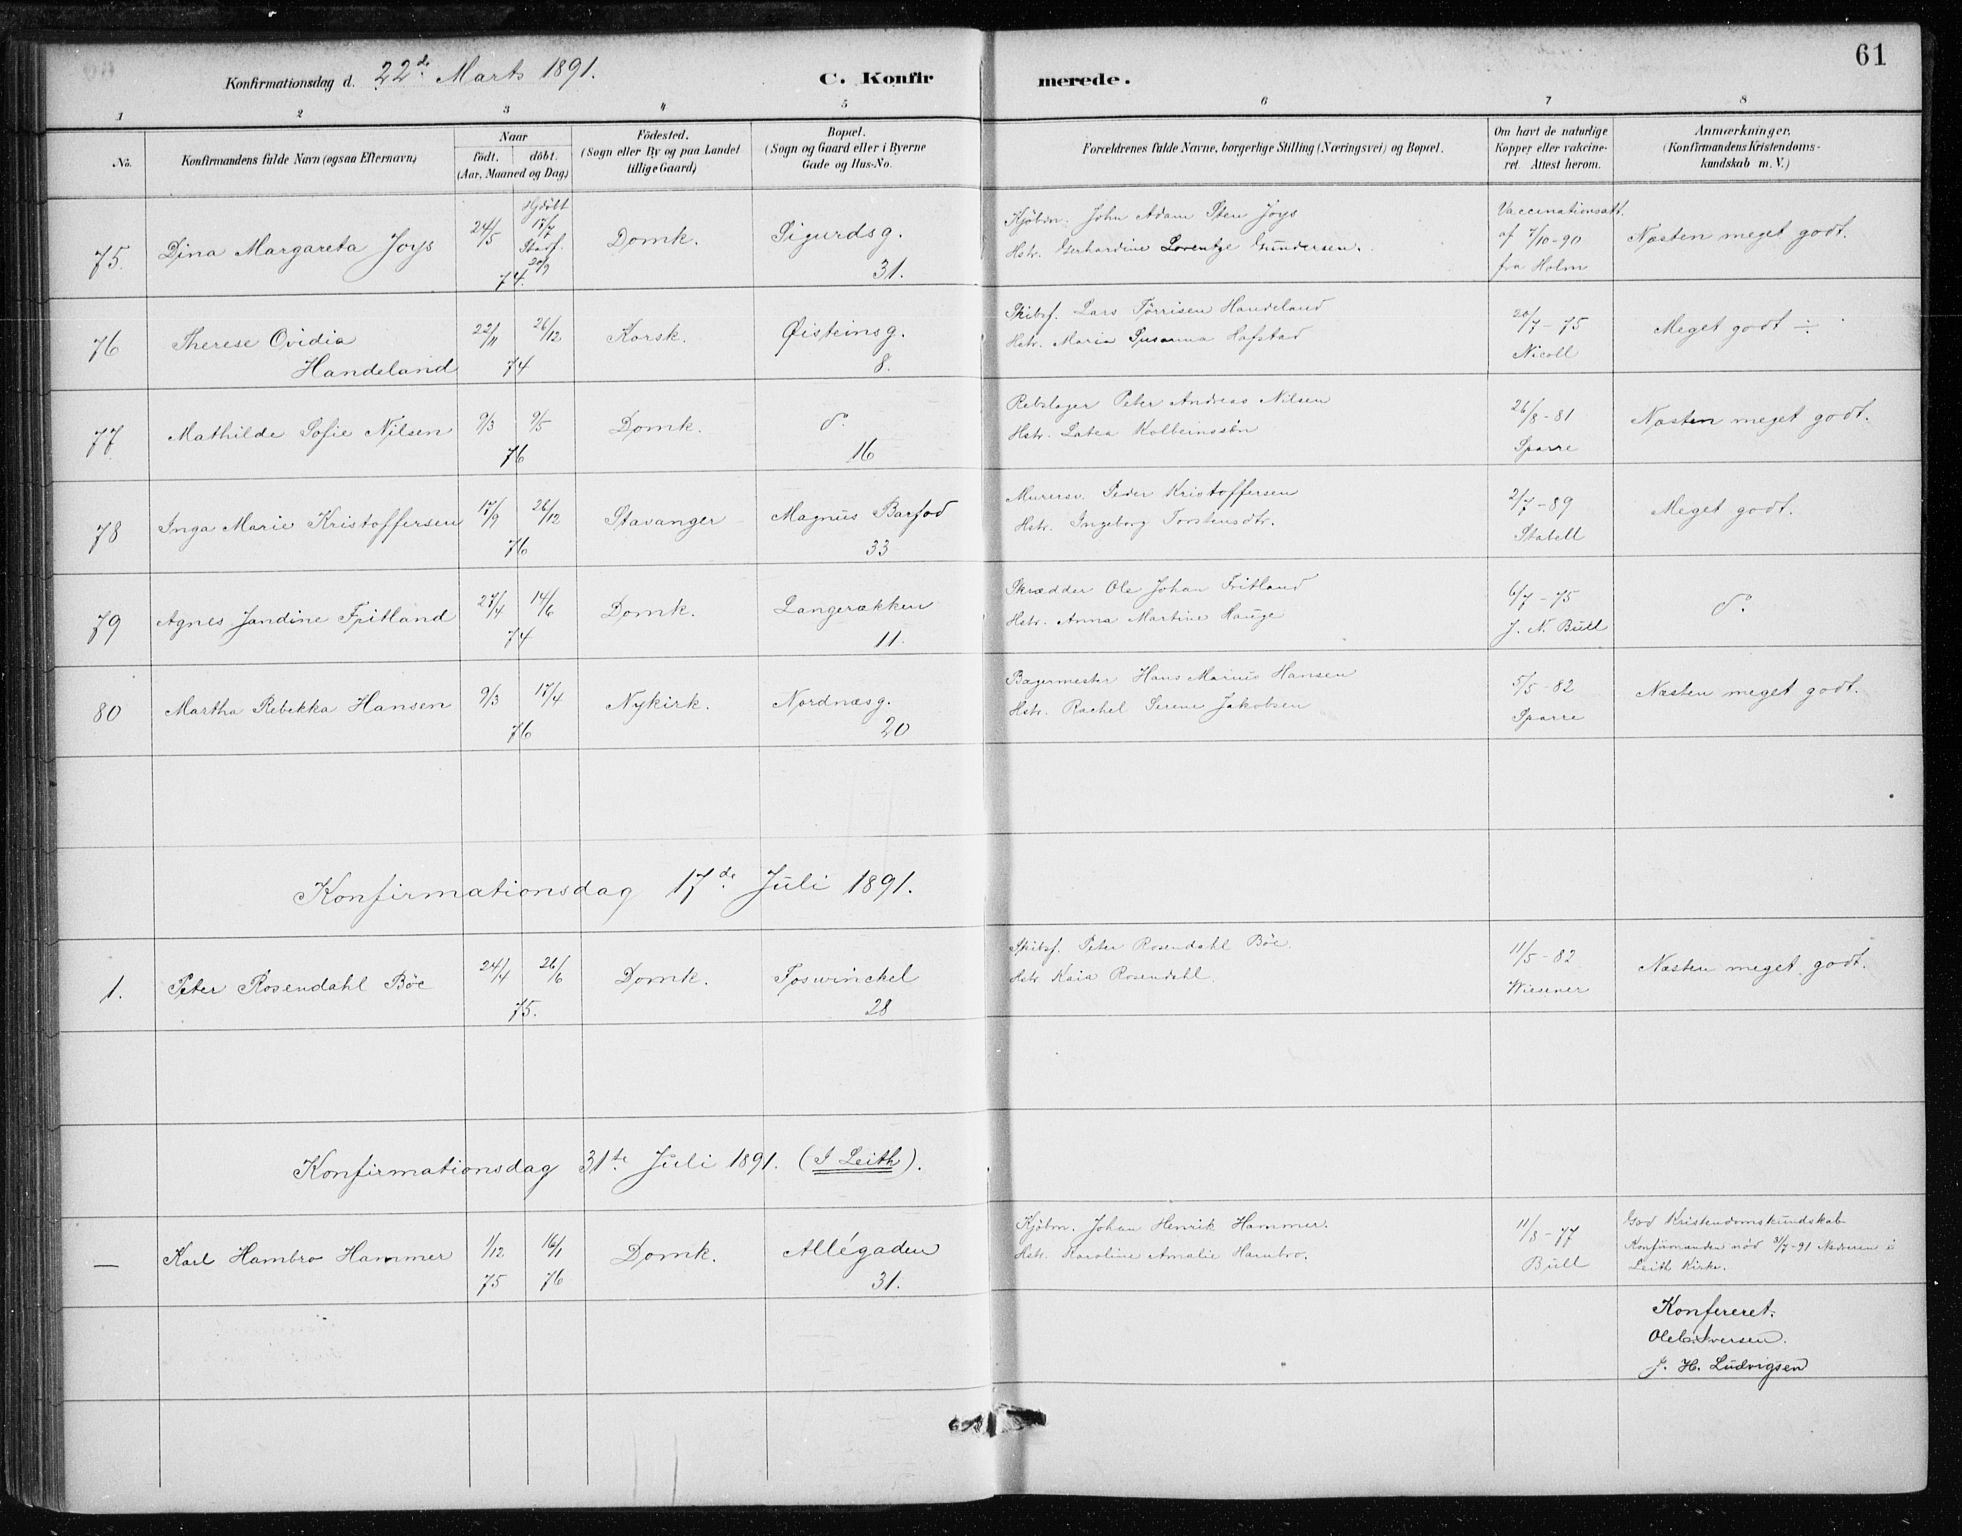 61
Konfirmationsdag d. 22de Marts 1891.
C. Konfirmerede.
1 2 3 4 5 6 7 8
No.
Konfirmandens fulde Navn (ogsaa Efternavn)
Naar
födt. döbt.
(Aar, Maaned og Dag)
Födested.
(Sogn eller By og paa Landet
tillige Gaard)
Bopæl.
(Sogn og Gaard eller i Byerne
Gade og Hus-No.
Forældrenes fulde Navne, borgerlige Stilling (Næringsvei) og Bopæl.
Om havt de naturlige
Kopper eller vakcine-
ret. Attest herom.
Anmærkninger.
(Konfirmandens Kristendoms-
kundskab m. V.)
75. Dina Margareta Joys
24/5
Hjdöbt
17/7
Stadf.
20/9
74.
Domk.
Sigurdsg.
31.
Kjöbm. John Adam Sten Joys
Hstr. Gerhardine Lorentze Gundersen.
Vaccinationsatt.
af 7/10-90
fra Holm
Næsten meget godt.
76 Therese Ovidia
Handeland
22/11 26/12
74
Korsk.
Øisteinsg.
8.
Skibsf. Lars Tørrisen Handeland
Hstr. Maria Susanna Hofstad
20/7-75
Nicoll
Meget godt ÷
77 Mathilde Sofie Nilsen
9/3 9/5
76
Domk.
do
16
Rebslager Peter Andreas Nilsen
Hstr. Latea Kolbeinssön
26/8-81
Sparre
Næsten meget godt.
78 Inga Marie Kristoffersen
17/9 26/12
76
Stavanger
Magnus Barfod
33
Murersv. Peder Kristoffersen
Hstr. Ingeborg Torstensdtr.
2/7-89
Stabell
Meget godt.
79 Agnes Jandine Fritland
27/4 14/6
74
Domk.
Langerækken
11.
Skrædder Ole Johan Fritland
Hstr. Anna Martine Hauge
6/7-75
J. N. Bull
do
80 Martha Rebekka Hansen
9/3 17/4
76
Nykirk.
Nordnæsg.
20
Bagermester Hans Marius Hansen
Hstr. Rachel Serene Jakobsen
5/5-82
Sparre
Næsten meget godt.
Konfirmationsdag 17de Juli 1891.
1. Peter Rosendahl Böe
24/4 26/6
75.
Domk.
Foswinckel
28
Skibsf. Peter Rosendahl Böe.
Hstr. Kaia Rosendahl.
11/5-82
Wiesener
Næsten meget godt.
Konfirmationsdag 31te Juli 1891. (I Leith).
— Karl Hambro Hammer
1/12 16/1
75 76
Domk.
Allégaden
31.
Kjöbm. Johan Henrik Hammer.
Hstr. Karoline Amalie Hambro.
11/3-77
Bull
God Kristendomskundskab
Konfirmanden nöd 31/7-91 Nadveren i
Leith Kirke.
Konfereret.
Ole Iversen.
J. H. Ludvigsen